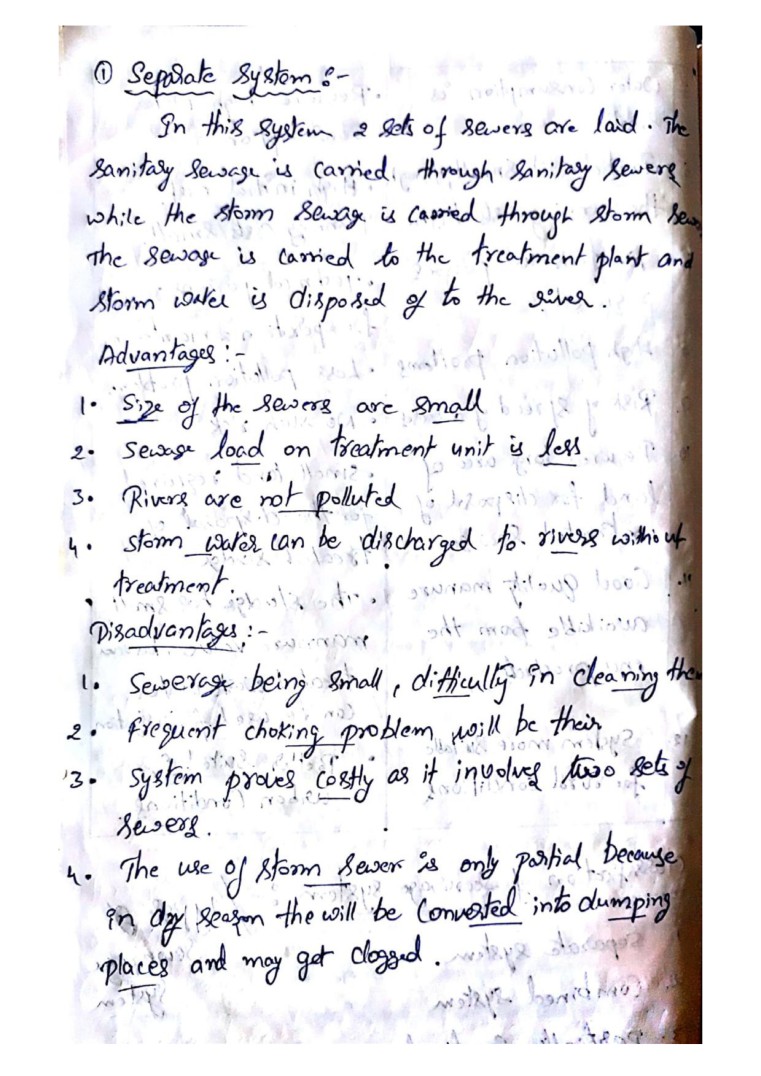 ① Separate System :-
In this system 2 sets of sewers are laid. The
sanitary sewage is carried through sanitary sewers
while the storm sewage is carried through storm sew
The sewage is carried to the treatment plant and
storm water is disposed of to the river.
Advantages :-
1. Size of the sewers are small
2. Sewage load on treatment unit is less
3. Rivers are not polluted
4. storm water can be discharged to rivers without
treatment.
Disadvantages :-
1. Sewerage being small, difficulty in cleaning the
2. frequent choking problem will be their
3. system proves costly as it involves two sets of
sewers.
4. The use of storm sewer is only partial because
in dry season the will be converted into dumping
places and may get clogged.